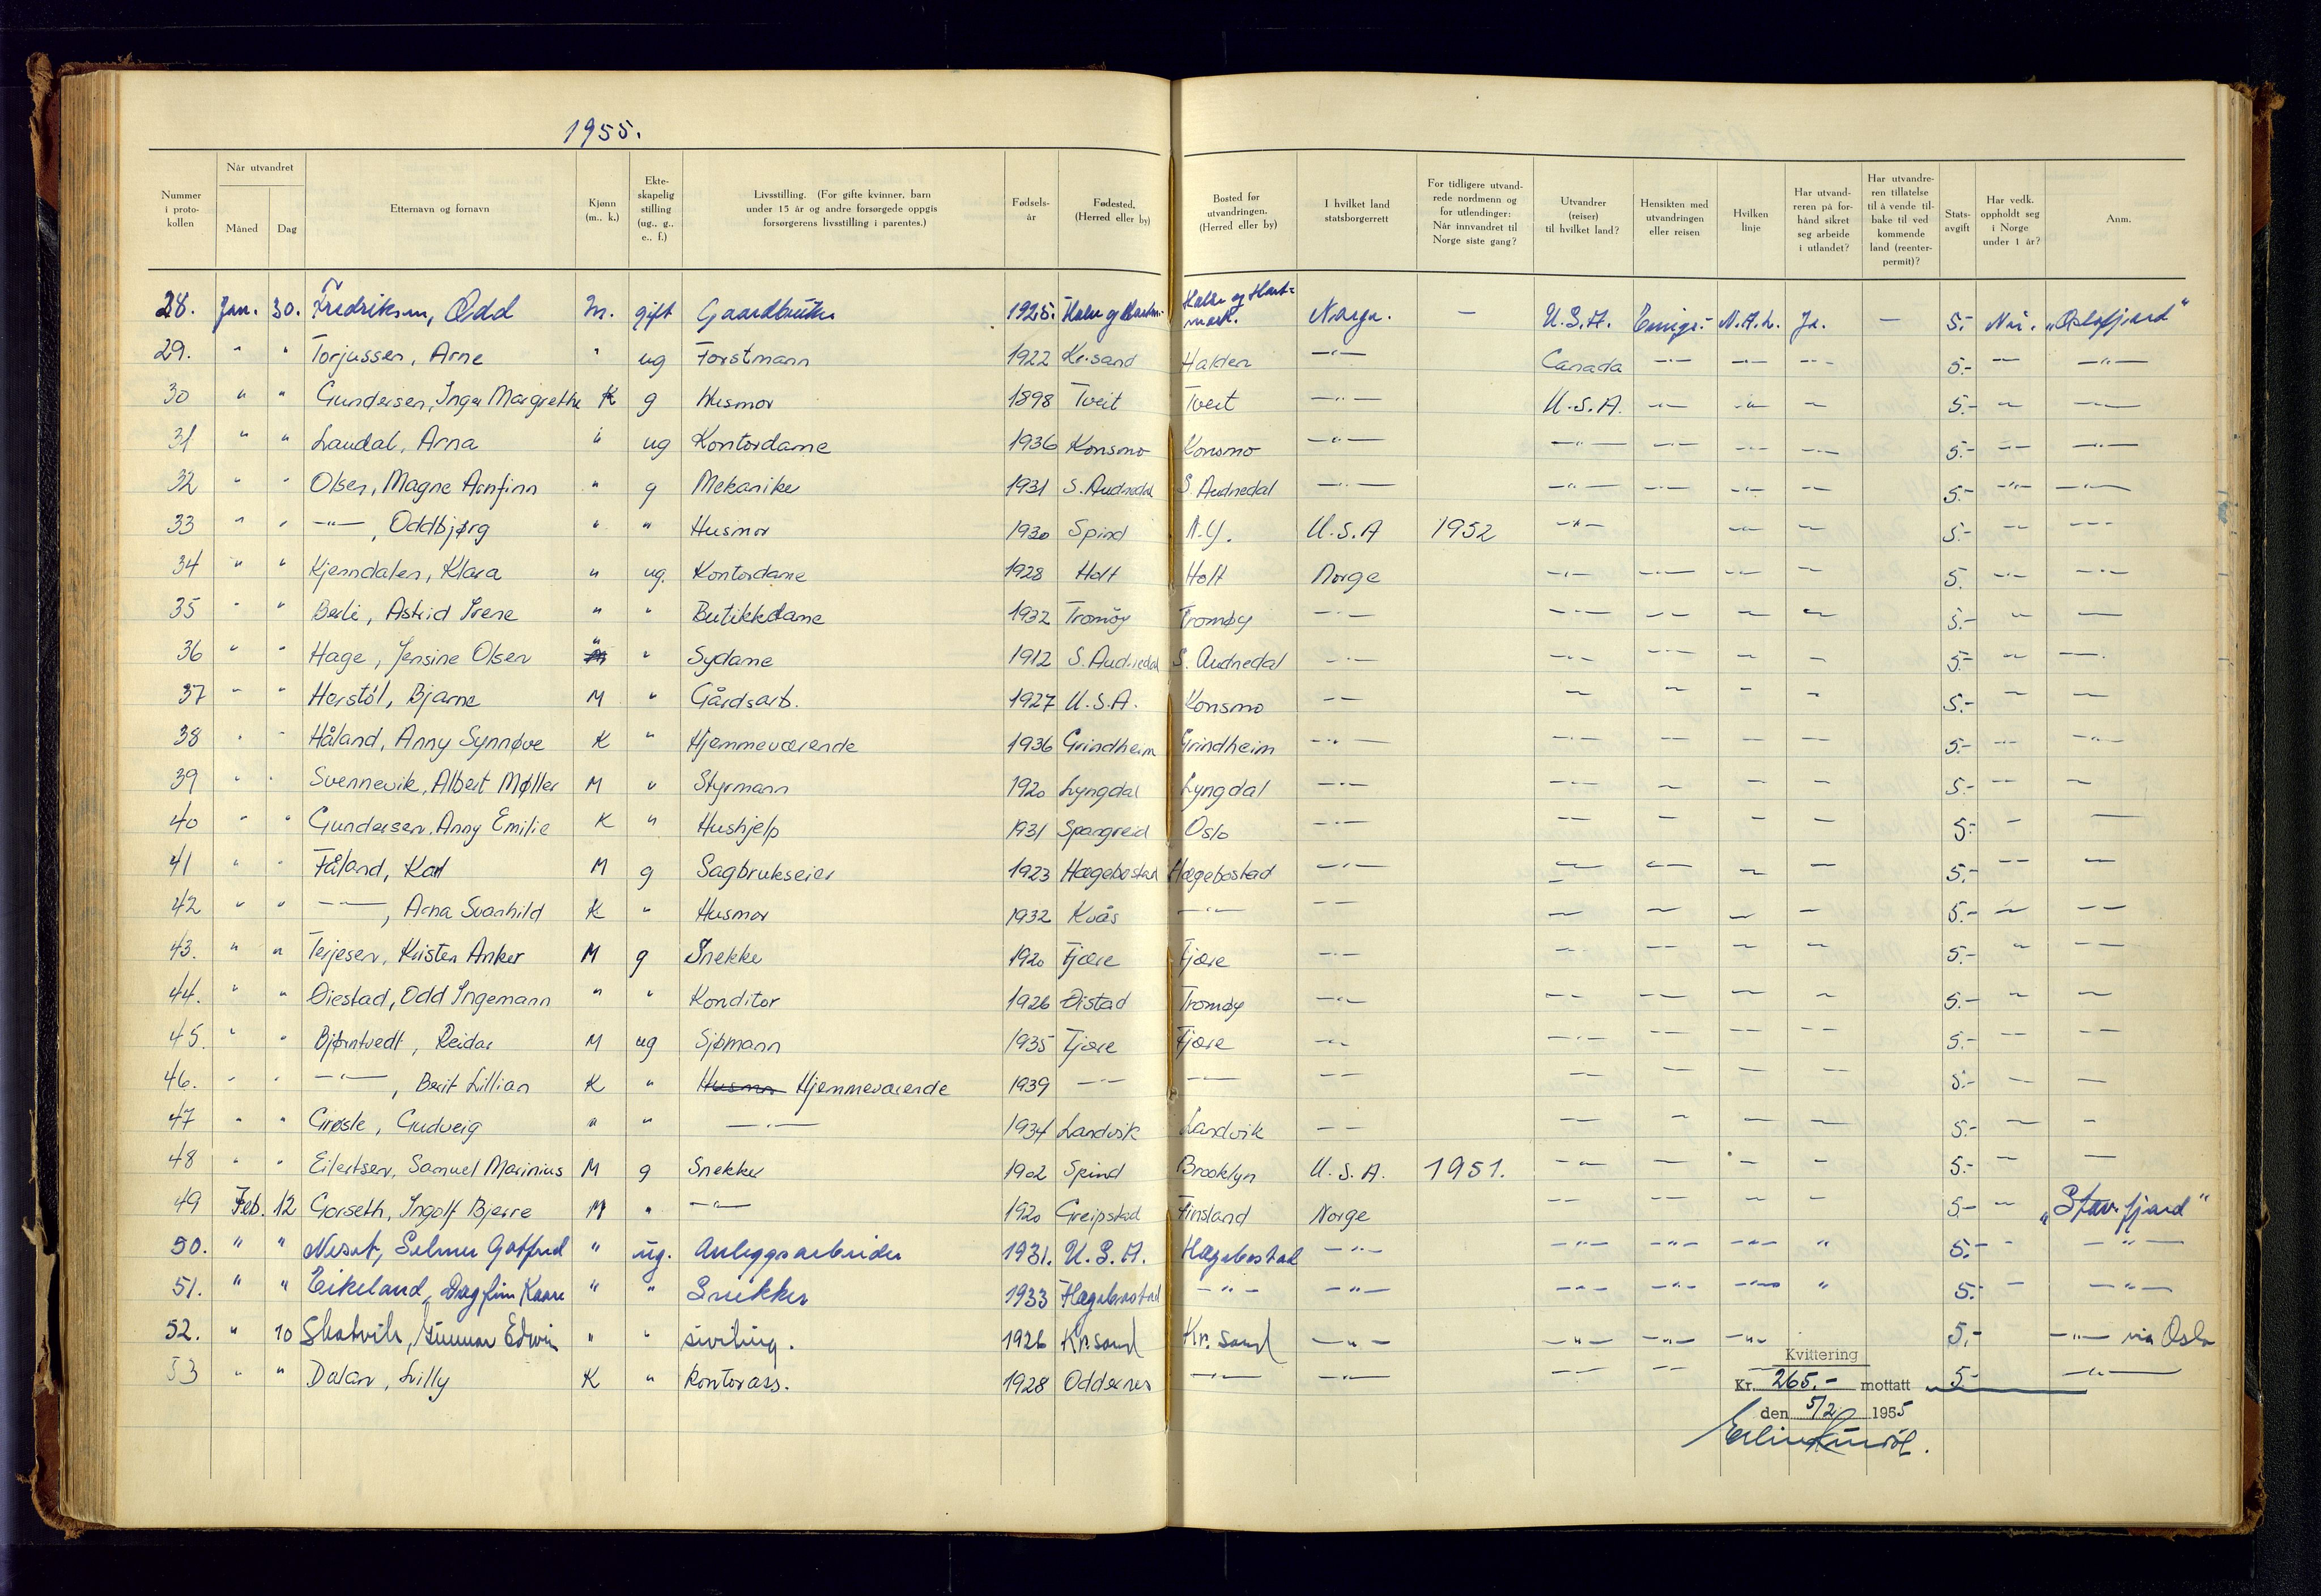 1955.
Nummer i proto- kollen | Når utvandret | Måned | Dag | Etternavn og fornavn | Kjønn (m., k.) | Ekte- skapelig stilling (ug., g., e., f.) | Livsstilling. (For gifte kvinner, barn under 15 år og andre forsørgede oppgis forsørgerens livsstilling i parentes.) | Fødsels- år | Fødested. (Herred eller by) | Bosted før utvandringen. (Herred eller by) | I hvilket land statsborgerrett | For tidligere utvand- rede nordmenn og for utlendinger: Når innvandret til Norge siste gang? | Utvandrer (reiser) til hvilket land? | Hensikten med utvandringen eller reisen | Hvilken linje | Har utvand- reren på for- hånd sikret seg arbeide i utlandet? | Har utvandre- ren tillatelse til å vende til- bake til ved kommende land (reenter- permit)? | Stats- avgift | Har vedk. oppholdt seg i Norge under 1 år? | Anm.
28. Jan. 30. Fredriksen, Odd m. gift Gaardbruker 1925. Halse og Harkm. Halse og Hark- mark. Norge. — U.S.A. Emigr.- N.A.L. Ja. — 5.- Nei. "Oslofjord"
29. " " Torjussen, Arne " ug Forstmann 1922 Kr.sand Halden —"— Canada —"— —"— —"— 5.- —"— —"—
30 " " Gundersen, Inger Margrethe K g Husmor 1898 Tveit Tveit —"— U.S.A. —"— —"— — 5.- — —"—
31 " " Laudal, Arna " ug Kontordame 1936 Konsmo Konsmo —"— —"— —"— —"— —"— 5.- —"— —"—
32 " " Olsen, Magne Arnfinn " g Mekaniker 1931 S. Audnedal S. Audnedal —"— —"— —"— —"— — 5.- —"— —"—
33 " " —"—, Oddbjørg " " Husmor 1930 Spind N.Y. U.S.A 1952 —"— —"— — 5.- —"— —"—
34 " " Kjenndalen, Klara " ug. Kontordame 1928 Holt Holt Norge —"— —"— —"— — 5. —"— —"—
35 " " Berli, Astrid Irene " " Butikkdame 1932 Tromøy Tromøy —"— —"— —"— — — 5.- — —
36 " " Hage, Jensine Olsen " " Sydame 1912 S. Audnedal S. Audnedal —"— —"— —"— — — 5.- — —
37 " " Herstöl, Bjarne M " Gårdsarb. 1927 U.S.A. Konsmo —"— — — — — 5.- — —
38 " " Håland, Anny Synnøve K " Hjemmeværende 1936 Grindheim Grindheim —"— —"— — — — 5.- —"— —"—
39 " " Svennevik, Albert Møller M " Styrmann 1920 Lyngdal Lyngdal —"— —"— — — — 5.- —"— —
40 " " Gundersen, Anny Emilie K " Hushjelp 1931 Spangreid Oslo —"— —"— — — — 5.- — —
41 " " Fåland, Karl M g Sagbrukseier 1923 Hægebostad Hægebostad —"— — —"— — — 5.- —"— —
42 " " —"—, Arna Svanhild K " Husmor 1932 Kvås —"— —"— — — — — 5.- — —"—
43. " " Terjesen, Kristen Anker M g Snekker 1920 Fjære Fjære —"— —"— —"— — — 5.- " —"—
44. " " Øiestad, Odd Ingemann " " Konditor 1926 Øistad Tromøy —"— —"— —"— — — 5.- — —
45. " " Bjørntvedt, Reidar M ug Sjømann 1935 Fjære Fjære —"— —"— —"— —"— —"— 5.- —"— —"—
46. " " —"—, Berit Lillian K " Husmor Hjemmeværende 1939 —"— —"— —"— —"— — — —"— 5.- — —
47 " " Grøsle, Gudveig " " —"— 1934 Landvik Landvik —"— — — — — 5.- — —
48 " " Eilertsen, Samuel Marinius M g Snekker 1902 Spind Brooklyn U.S.A. 1951. —"— — — — 5.- — —
49 Feb. 12 Gorseth, Ingolf Bjerre M " —"— 1920 Greipstad Finsland Norge —"— —"— — — 5.- — "Stav.fjord"
50. " " Neset, Selmer Gotfred " ug. Anleggsarbeider 1931. U.S.A. Hægebostad —"— —"— —"— —"— " 5.- " —"—
51. " " Eikeland, Dagfinn Kaare " " Snekker 1933 Hægebostad —"— —"— —"— —"— —"— " 5.- — —"—
52. " 10 Skotvik, Gunnar Edwin " " siviling. 1926 Kr.sand Kr.sand —"— —"— —"— —"— 5.- —"— via Oslo
53 " " Dalan, Lilly K " Kontorass. 1928 Oddernes —"— —"— —"— —"— 5.- —"—
Kvittering
Kr. 265.- mottatt
den 5/2 1955